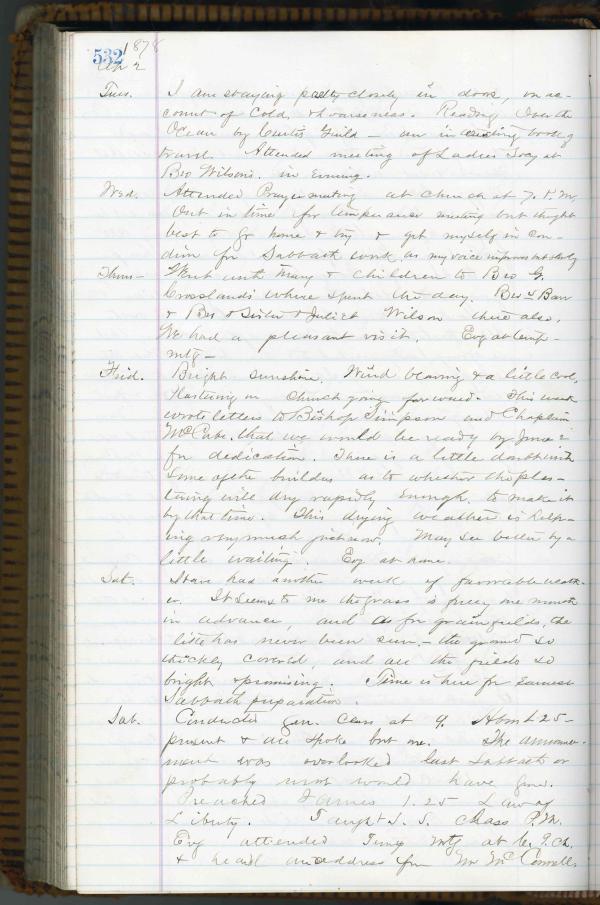 532 1878
Apr 2
Tues. I am staying pretty closely in doors, on ac-
count of Cold, & hoarseness. Reading Over the
Ocean by Curtis Guild - an interesting book of
travel. Attended meeting of Ladies Soc'y at
Bro Wilson's. in Evening.
Wed. Attended Prayer meeting at Church at 7. P.M.
Out in time for temperance meeting but thought
best to go home & try & get myself in con-
dition for Sabbath work, as my voice improves but slowly
Thurs- Went with Mary & Children to Bro G.
Crosslands where spent the day. Bro & Barr
& Bro & Sister & Juliet Wilson there also.
We had a pleasant visit. Evg at Temp-
mtg-
Frid. Bright sunshine. Wind blowing & a little cool.
Plastering on Church going forward. This week
wrote letters to Bishop Simpson and Chaplain
McCabe, that we would be ready by June 2
for dedication. There is a little doubt with
some of the builders as to whether the plas-
tering will dry rapidly enough, to make it
by that time. This drying weather is help-
ing very much just now. May see better by a
little waiting. Evg at home.
Sat. Have had another week of favorable weath-
er. It seems to me the grass is fully one month
in advance, and as for grain fields, the
like has never been seen - the ground so
thickly covered, and all the fields so
bright & promising. Time is here for Earnest
Sabbath preparation.
Sab. Conducted Gen. Class at 9. About 25-
present & all spoke but one. The announce-
ment was overlooked last Sabbath or
probably more would have gone.
Preached James 1.25 Law of
Liberty. Taught S. S. Class P.M.
Evg attended Temp mtg at Ch.
& heard an address from Mr McConnell